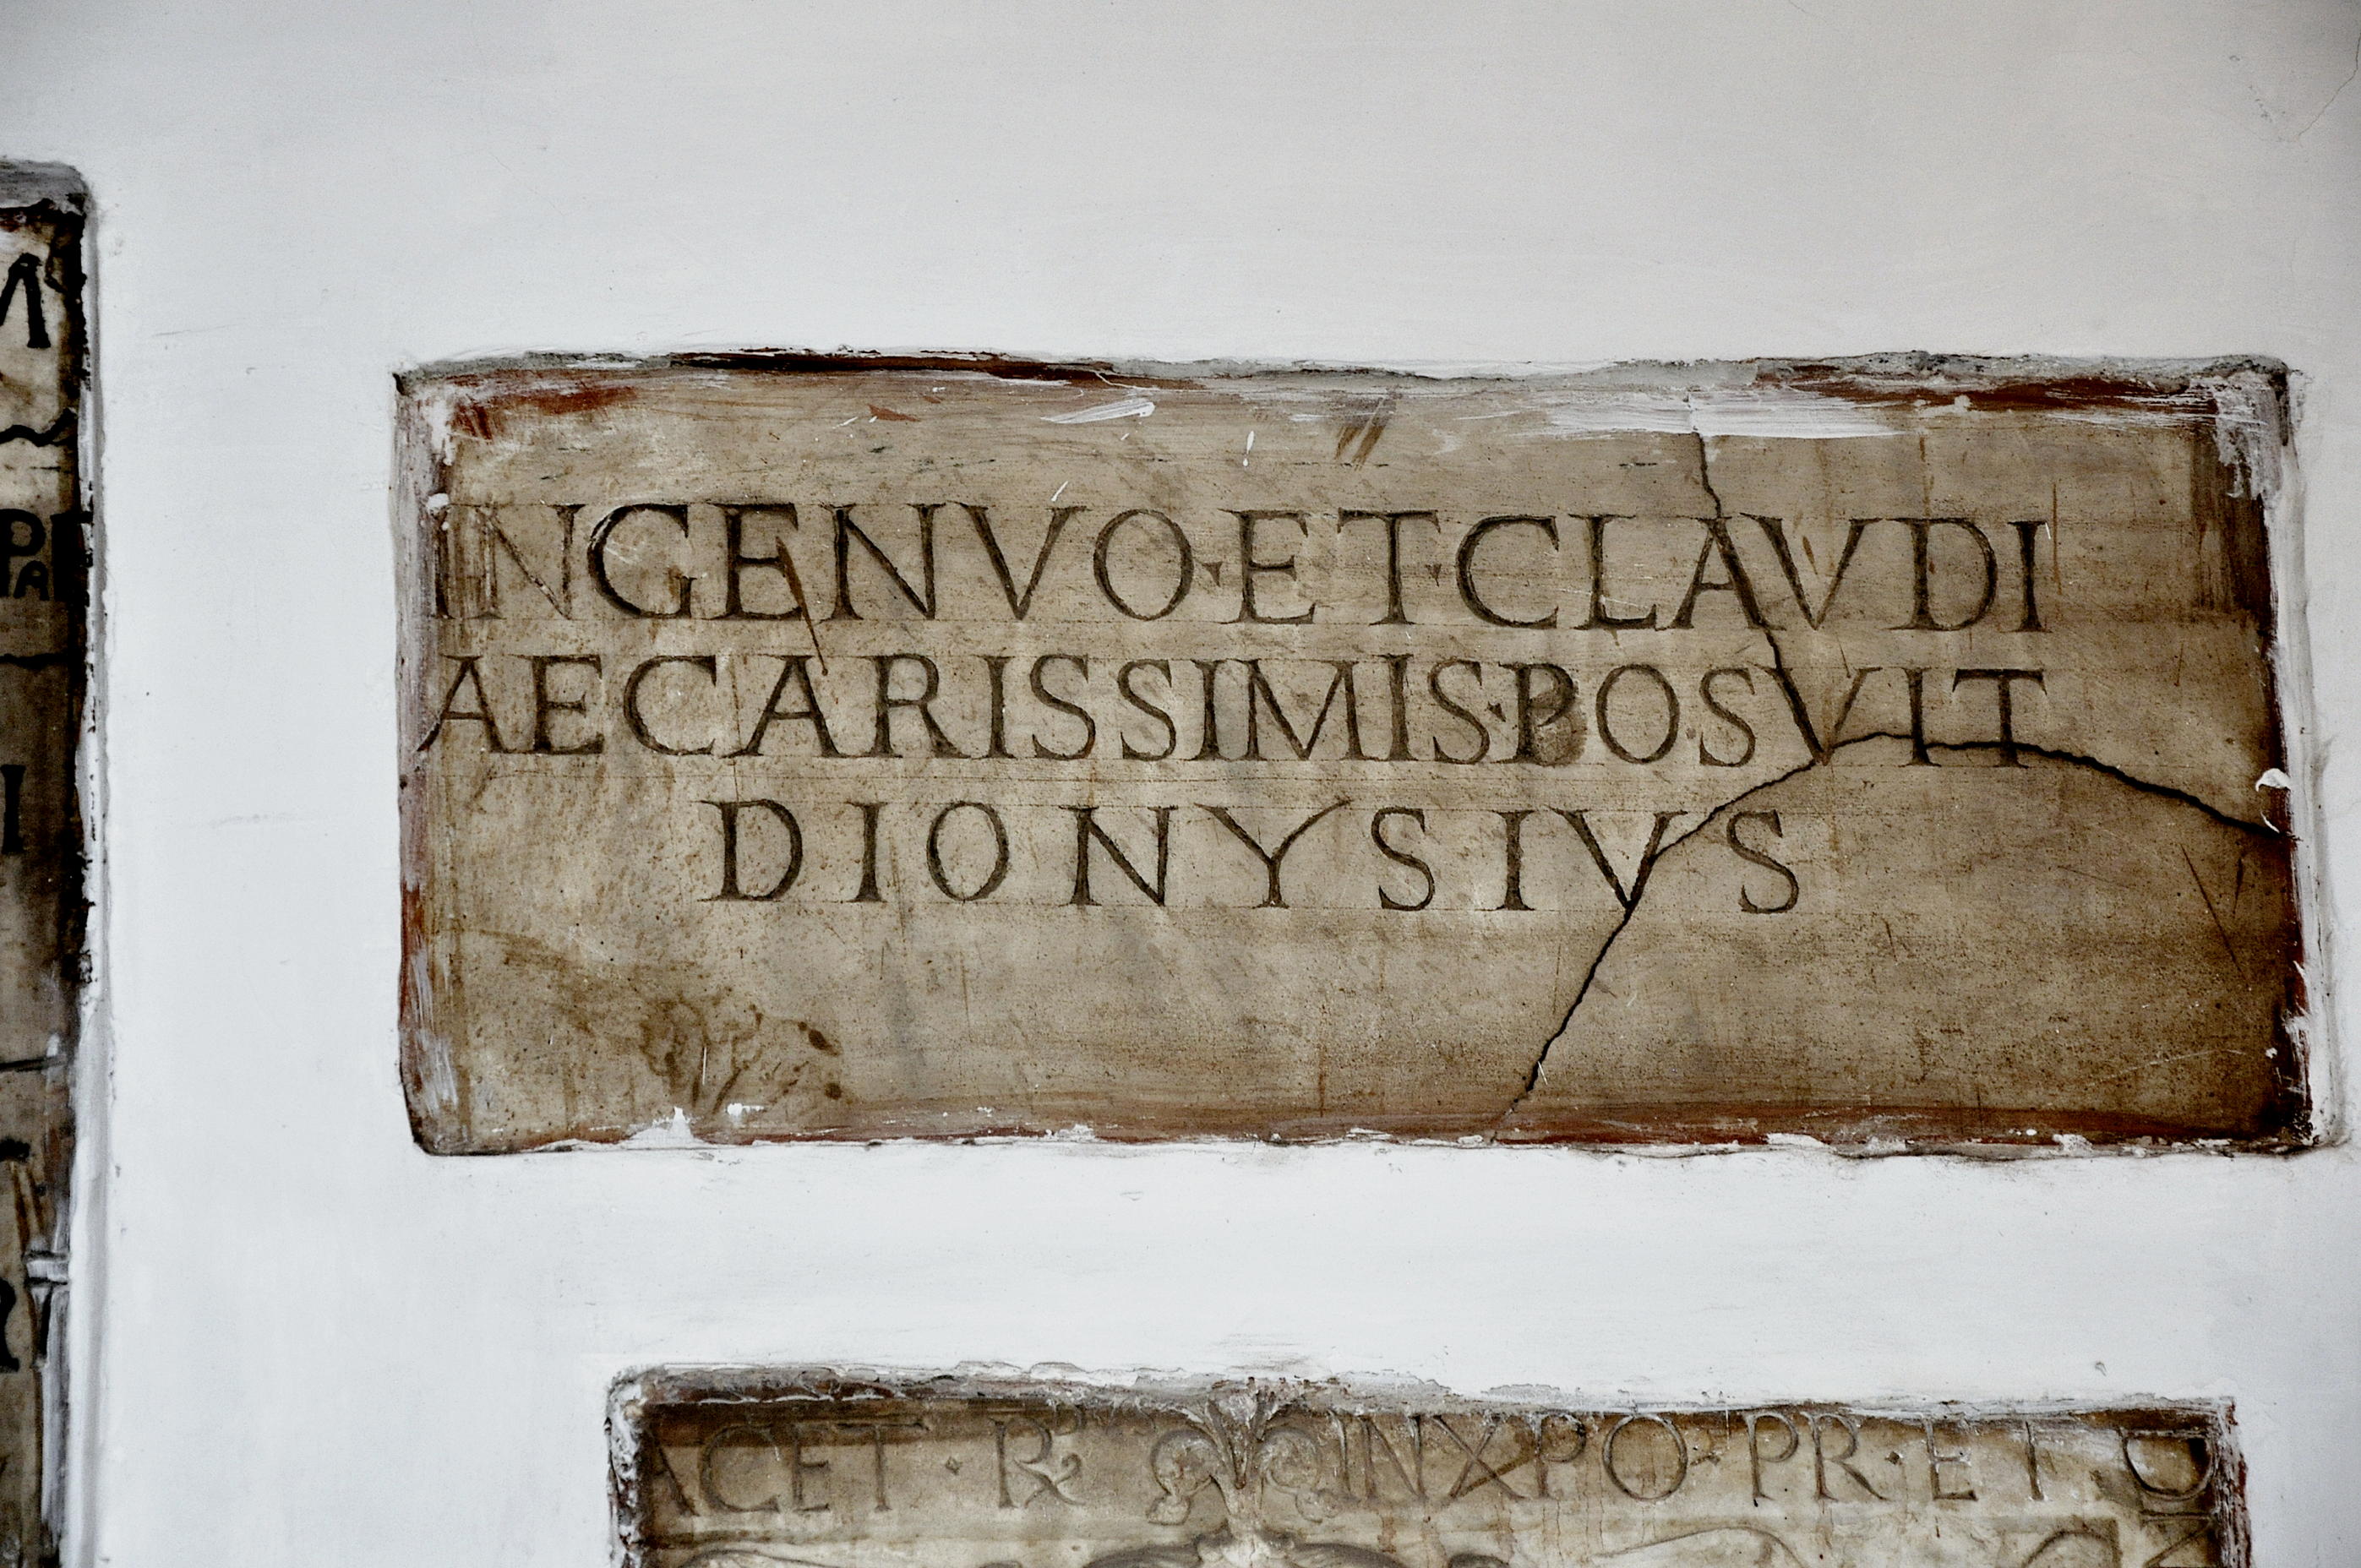 INGENVO·ET·CLAVDI
AECARISSIMIS·POSVIT
DIONYSIVS
ACET · R INXPO · PR · ET